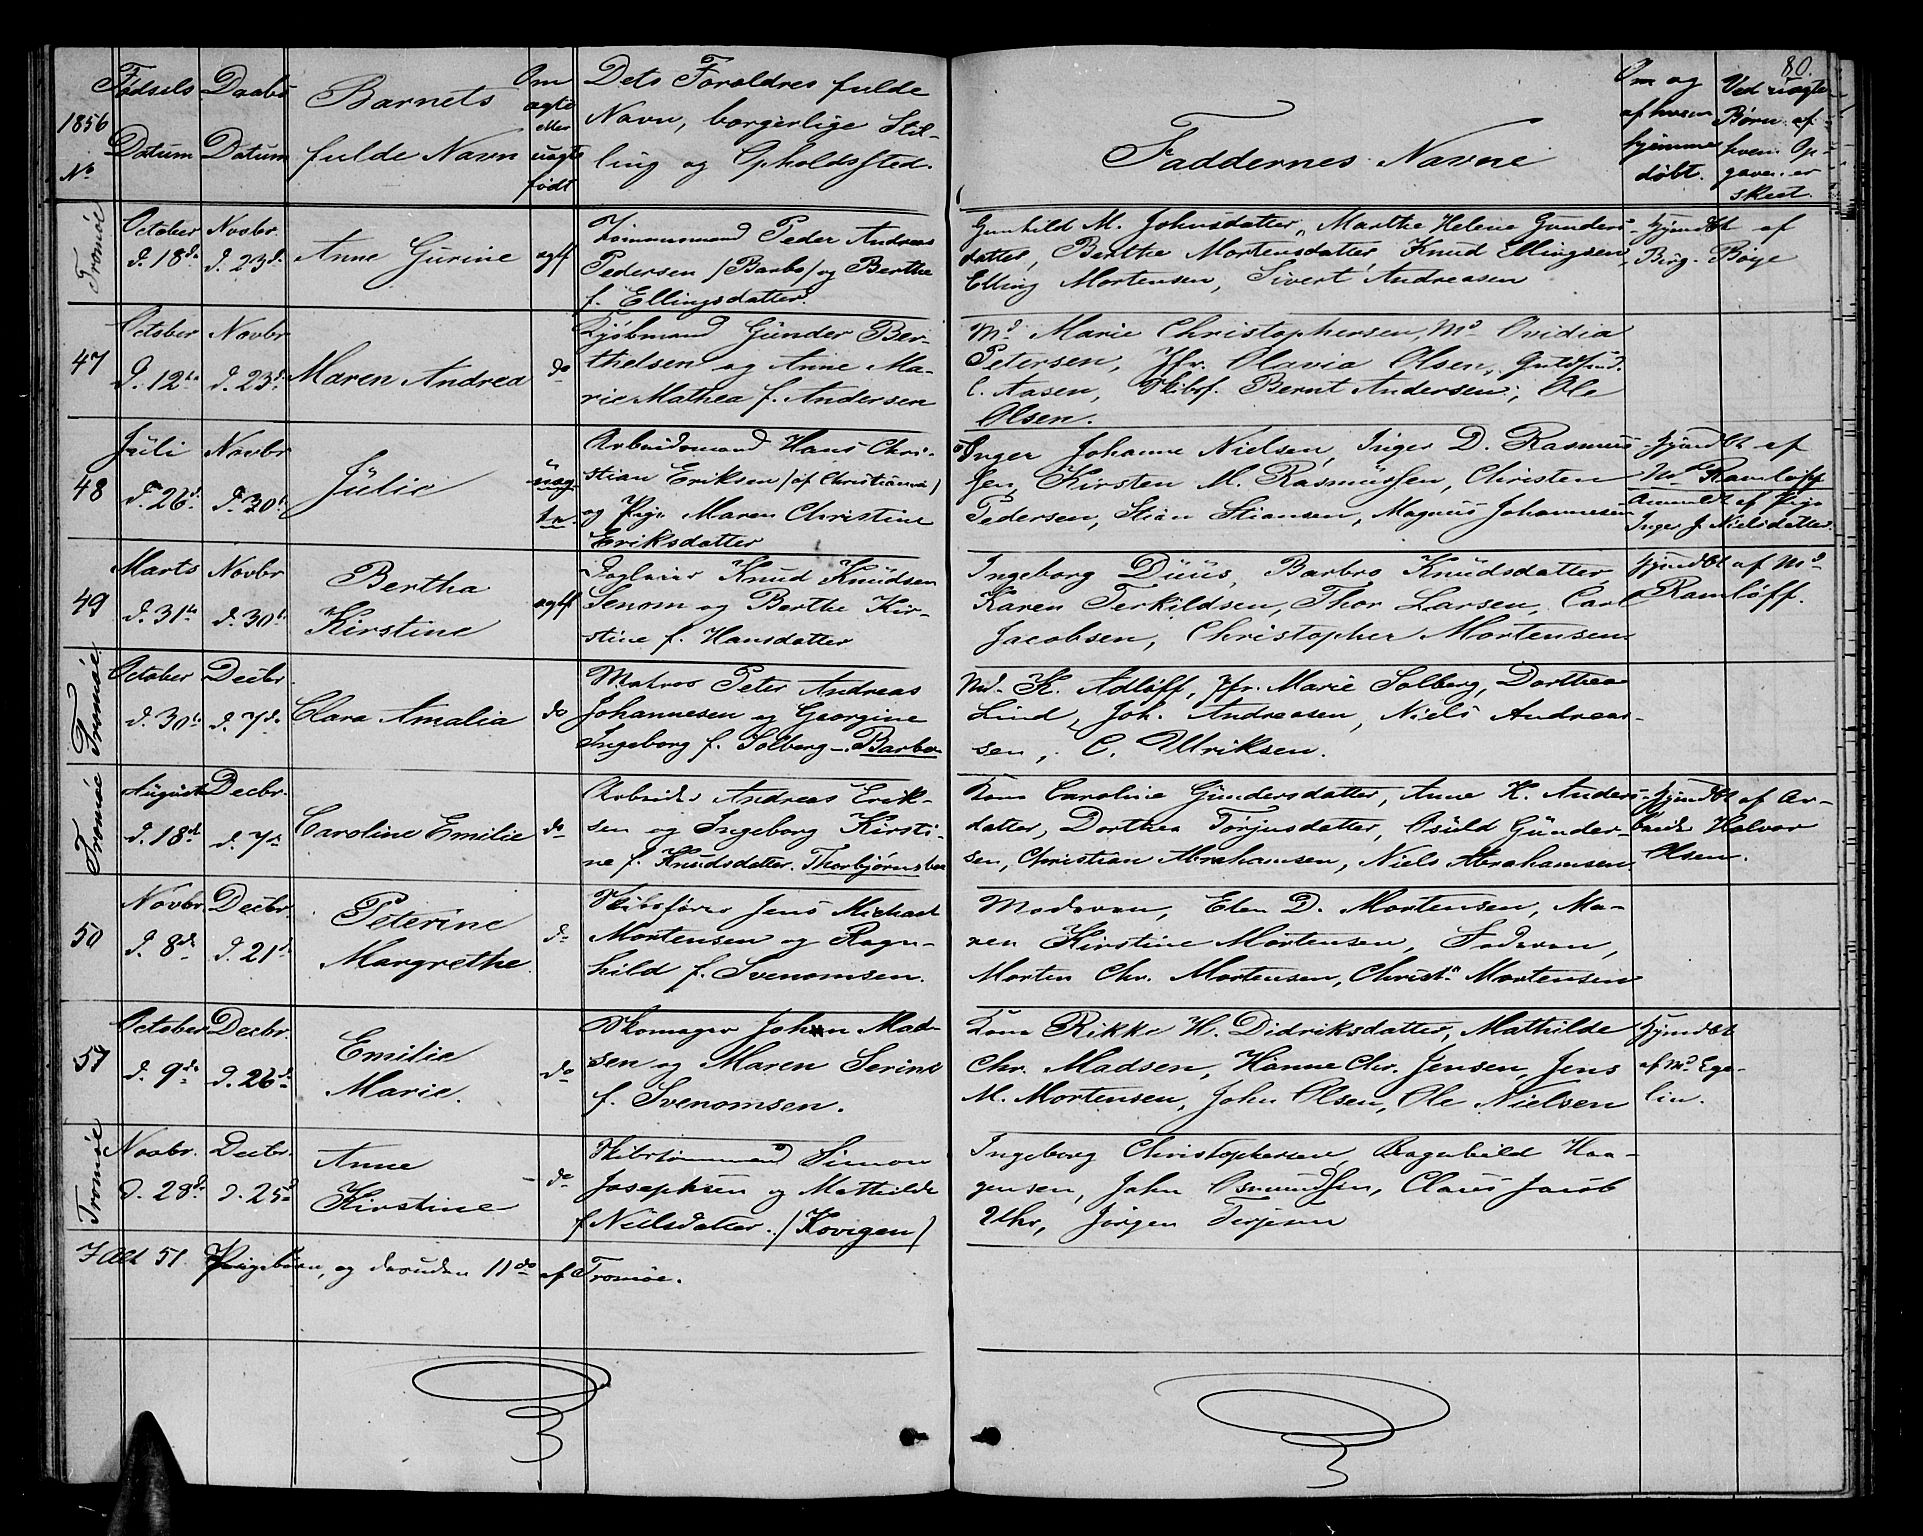 80.
1856
No
Fødsels
Datum
Daabs
Datum
Barnets
fulde Navn
Om
ægte
eller
uægte
født
Dets Forældres fulde
Navn, borgerlige Stil-
ling og Opholdssted.
Faddernes Navne
Om og
af hvem
hjemme
døbt.
Ved uægte
Børn af
hvem Op-
gaven er
skeet.
Tromøe
October
d. 18de
Novbr.
d. 23d.
Anne Gurine
ægtf
Tømmermand Peder Andreas
Pedersen (Barbo) og Berthe
f. Ellingsdatter.
Gunhild M. Johnsdatter, Marthe Helene Gunders-
datter, Berthe Mortensdatter, Knud Ellingsen,
Elling Mortensen, Sivert Andreasen
Hjmdbt af
Berg. Boye
47
October
d. 12te
Novbr
d. 23d.
Maren Andrea
do
Kjøbmand Gunder Ber-
thelsen og Anne Ma-
rie Mathea f. Andersen
Md Marie Christophersen, Md Ovidia
Petersen, Jfr. Olavia Olsen, Guldsmd.
C. Aasen, Skibsf. Bernt Andersen, Ole
Olsen.
48
Juli
d. 26d.
Novbr
d. 30t
Julie
uæg
te.
Arbeidsmand Hans Chri-
stian Eriksen (af Christiania)
og Pige Maren Christine
Eriksdatter
Inger Johanne Nielsen, Inger D. Rasmus-
sen, Kirsten M. Rasmussen, Christen
Pedersen, Stian Stiansen, Magnus Johannesen
Hjmdbt af
Md Ramløff
Anmeldt af Pige
Inger J. Nielsdatter.
49
Marts
d. 31te
Novbr
d. 30t
Bertha
Kirstine
ægtf
Dagleier Knud Knudsen
Senom og Berthe Kir-
stine f. Hansdatter
Ingeborg Duus, Barbro Knudsdatter,
Karen Terkildsen, Thor Larsen, Carl
Jacobsen, Christopher Mortensen
Hjmdbt af Md
Ramløff.
Tromøe
October
d. 30te
Decbr.
d. 7de
Clara Amalia
do
Matros Peter Andreas
Johannesen og Georgine
Ingeborg f. Solberg. Barbo
Md. K. Adløff, Jfr. Marie Solberg, Dorthea
Lind, Joh. Andreasen, Niels Andreas-
sen, C. Ulriksen.
Tromøe
August
d. 18d
Decbr.
d. 7de
Caroline Emilie
do
Arbeider Andreas Erik-
sen og Ingeborg Kirsti-
ne f. Knudsdatter. Thorbjørnsbue
Kone Caroline Gundersdatter, Anne K. Anders-
datter, Dorthea Torjusdatter, Osuld Gunder-
sen, Christian Abrahamsen, Niels Abrahamsen
Hjmdbt af Ar-
beider Halvor
Olsen.
50
Novbr.
d. 8de
Decbr.
d. 21d
Peterine
Margrethe
do
Skibsfører Jens Michael
Mortensen og Ragn-
hild f. Svenomsen.
Moderen, Elen D. Mortensen, Ma-
ren Kirstine Mortensen, Faderen,
Morten Chr. Mortensen, Christn Mortensen
51
October
d. 9de
Decbr.
d. 26de
Emilie
Marie.
do
Skomager Johan Mad-
sen og Maren Serine
f. Svenomsen.
Kone Rikke H. Didriksdatter, Mathilde
Chr. Madsen, Hanne Chr. Jensen, Jens
M. Mortensen, John Olsen, Ole Nielsen
Hjmdbt
af Md Ege-
lin.
Tromøe
Novbr.
d. 28d.
Decbr.
d. 25d
Anne
Kirstine
do
Skibstømmermand Simon
Josephsen og Mathilde
f. Nielsdatter. (Kovigen)
Ingeborg Christophersen, Ragnhild Haa-
gensen, John Osmundsen, Claus Jacob
Uhr, Jørgen Terjesen
I Alt 51. Pigebørn, og desuden 11 do af Tromøe.